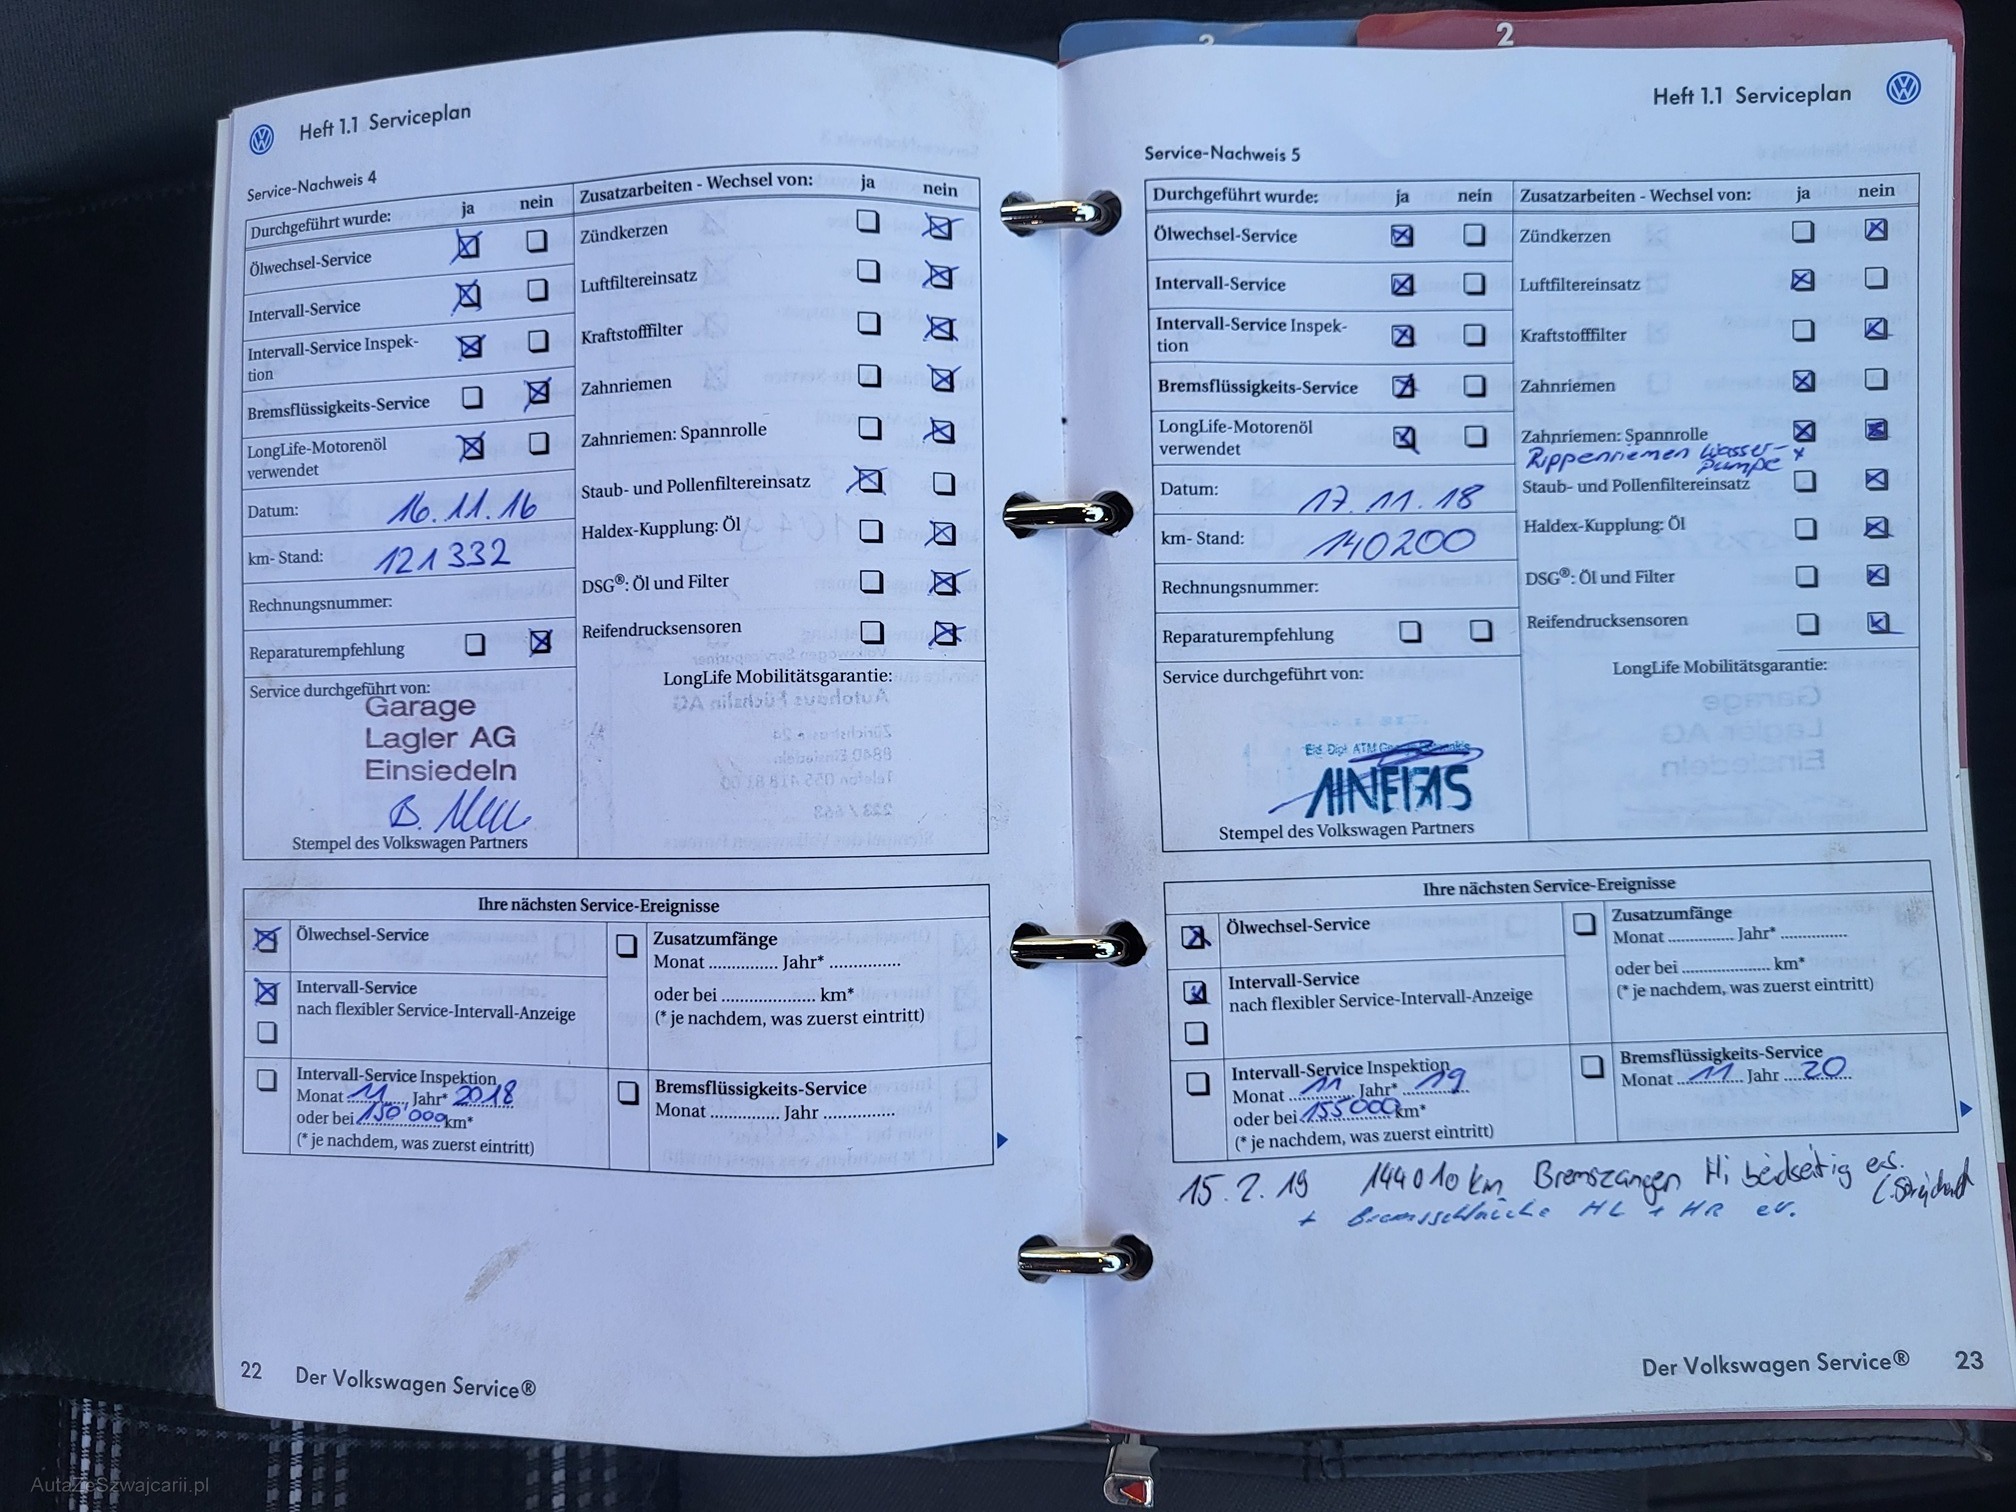 Heft 1.1 Serviceplan
Service-Nachweis 4
Durchgeführt wurde: ja nein
Ölwechsel-Service
Intervall-Service
Intervall-Service Inspek-
tion
Bremsflüssigkeits-Service
LongLife-Motorenöl
verwendet
Datum: 16.11.16
km- Stand: 121332
Rechnungsnummer:
Reparaturempfehlung
Service durchgeführt von:
Garage
Lagler AG
Einsiedeln
B.
Stempel des Volkswagen Partners
Zusatzarbeiten - Wechsel von: ja nein
Zündkerzen
Luftfiltereinsatz
Kraftstofffilter
Zahnriemen
Zahnriemen: Spannrolle
Staub- und Pollenfiltereinsatz
Haldex-Kupplung: Öl
DSG®: Öl und Filter
Reifendrucksensoren
LongLife Mobilitätsgarantie:
Ihre nächsten Service-Ereignisse
Ölwechsel-Service
Intervall-Service
nach flexibler Service-Intervall-Anzeige
Intervall-Service Inspektion
Monat 11 Jahr* 2018
oder bei 150'000 km*
(* je nachdem, was zuerst eintritt)
Zusatzumfänge
Monat .............. Jahr* ..............
oder bei .................... km*
(* je nachdem, was zuerst eintritt)
Bremsflüssigkeits-Service
Monat .............. Jahr ..............
22 Der Volkswagen Service®
2
Heft 1.1 Serviceplan
Service-Nachweis 5
Durchgeführt wurde: ja nein
Ölwechsel-Service
Intervall-Service
Intervall-Service Inspek-
tion
Bremsflüssigkeits-Service
LongLife-Motorenöl
verwendet
Datum: 17.11.18
km- Stand: 140200
Rechnungsnummer:
Reparaturempfehlung
Service durchgeführt von:
Eid. Dipl. ATM
Stempel des Volkswagen Partners
Zusatzarbeiten - Wechsel von: ja nein
Zündkerzen
Luftfiltereinsatz
Kraftstofffilter
Zahnriemen
Zahnriemen: Spannrolle
Rippenriemen Wasser-
pumpe
Staub- und Pollenfiltereinsatz
Haldex-Kupplung: Öl
DSG®: Öl und Filter
Reifendrucksensoren
LongLife Mobilitätsgarantie:
Ihre nächsten Service-Ereignisse
Ölwechsel-Service
Intervall-Service
nach flexibler Service-Intervall-Anzeige
Intervall-Service Inspektion
Monat 11 Jahr* 19
oder bei 155000 km*
(* je nachdem, was zuerst eintritt)
Zusatzumfänge
Monat .............. Jahr* ..............
oder bei .................... km*
(* je nachdem, was zuerst eintritt)
Bremsflüssigkeits-Service
Monat 11 Jahr 20
15.2.19 144010 km Bremszangen Hi beidseitig ers.
+ Bremsschläuche HL + HR er.
Der Volkswagen Service® 23
AutaZeSzwajcarii.pl